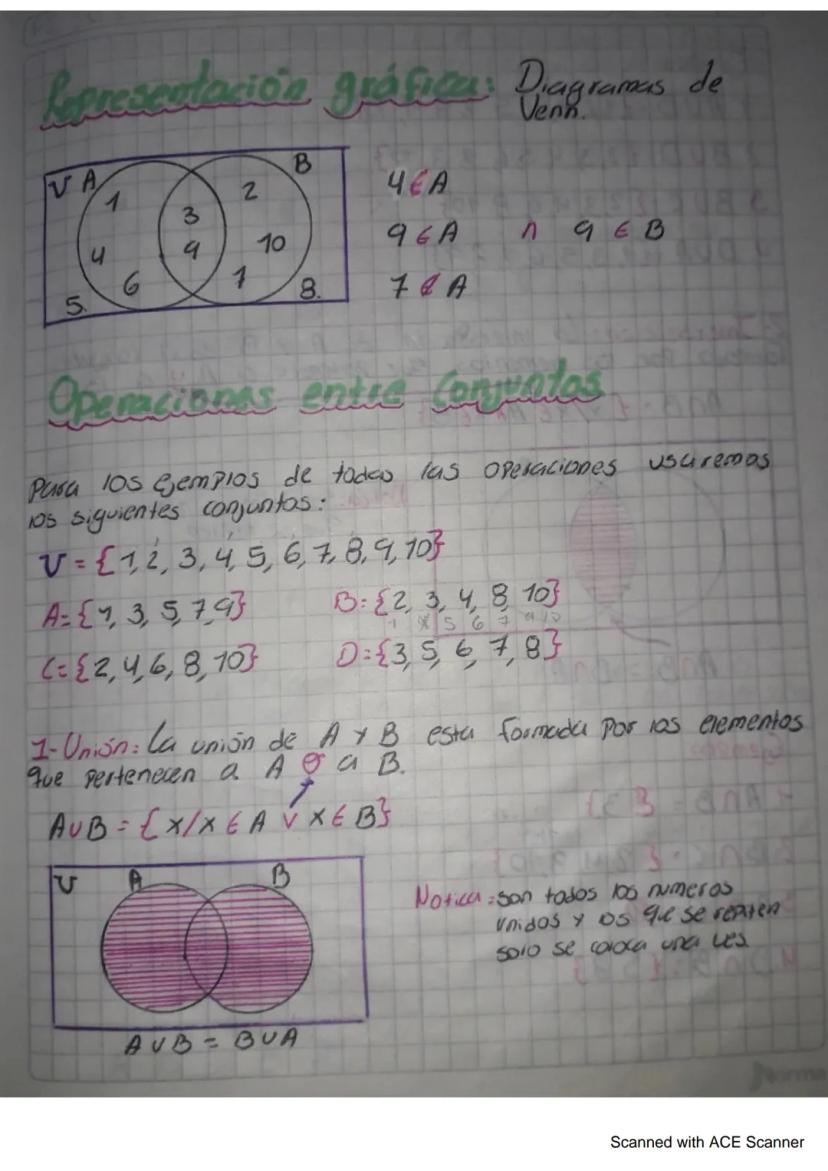 Representación gráfica: Diagramas de
Venn.
U A B
1 2
3
4 9 10
6 7
5. 8.
4 ∈ A
9 ∈ A ∧ 9 ∈ B
7 ∉ A
Operaciones entre Conjuntos
Para los ejemplos de todas las operaciones usaremos
los siguientes conjuntos:
U = {1, 2, 3, 4, 5, 6, 7, 8, 9, 10}
A = {1, 3, 5, 7, 9} B: {2, 3, 4, 8, 10}
C = {2, 4, 6, 8, 10} D = {3, 5, 6, 7, 8}
1- Unión: La unión de A y B esta formada por los elementos
que pertenecen a A o a B.
A∪B = {x/x ∈ A ∨ x ∈ B}
U A B
Notica: son todos los numeros
unidos y los que se repiten
solo se coloca una ves
A∪B = B∪A
Norma
Scanned with ACE Scanner